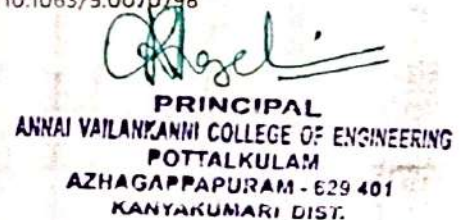 10.1063/5.0070798
PRINCIPAL
ANNAI VAILANKANNI COLLEGE OF ENGINEERING
POTTALKULAM
AZHAGAPPAPURAM - 629 401
KANYAKUMARI DIST.